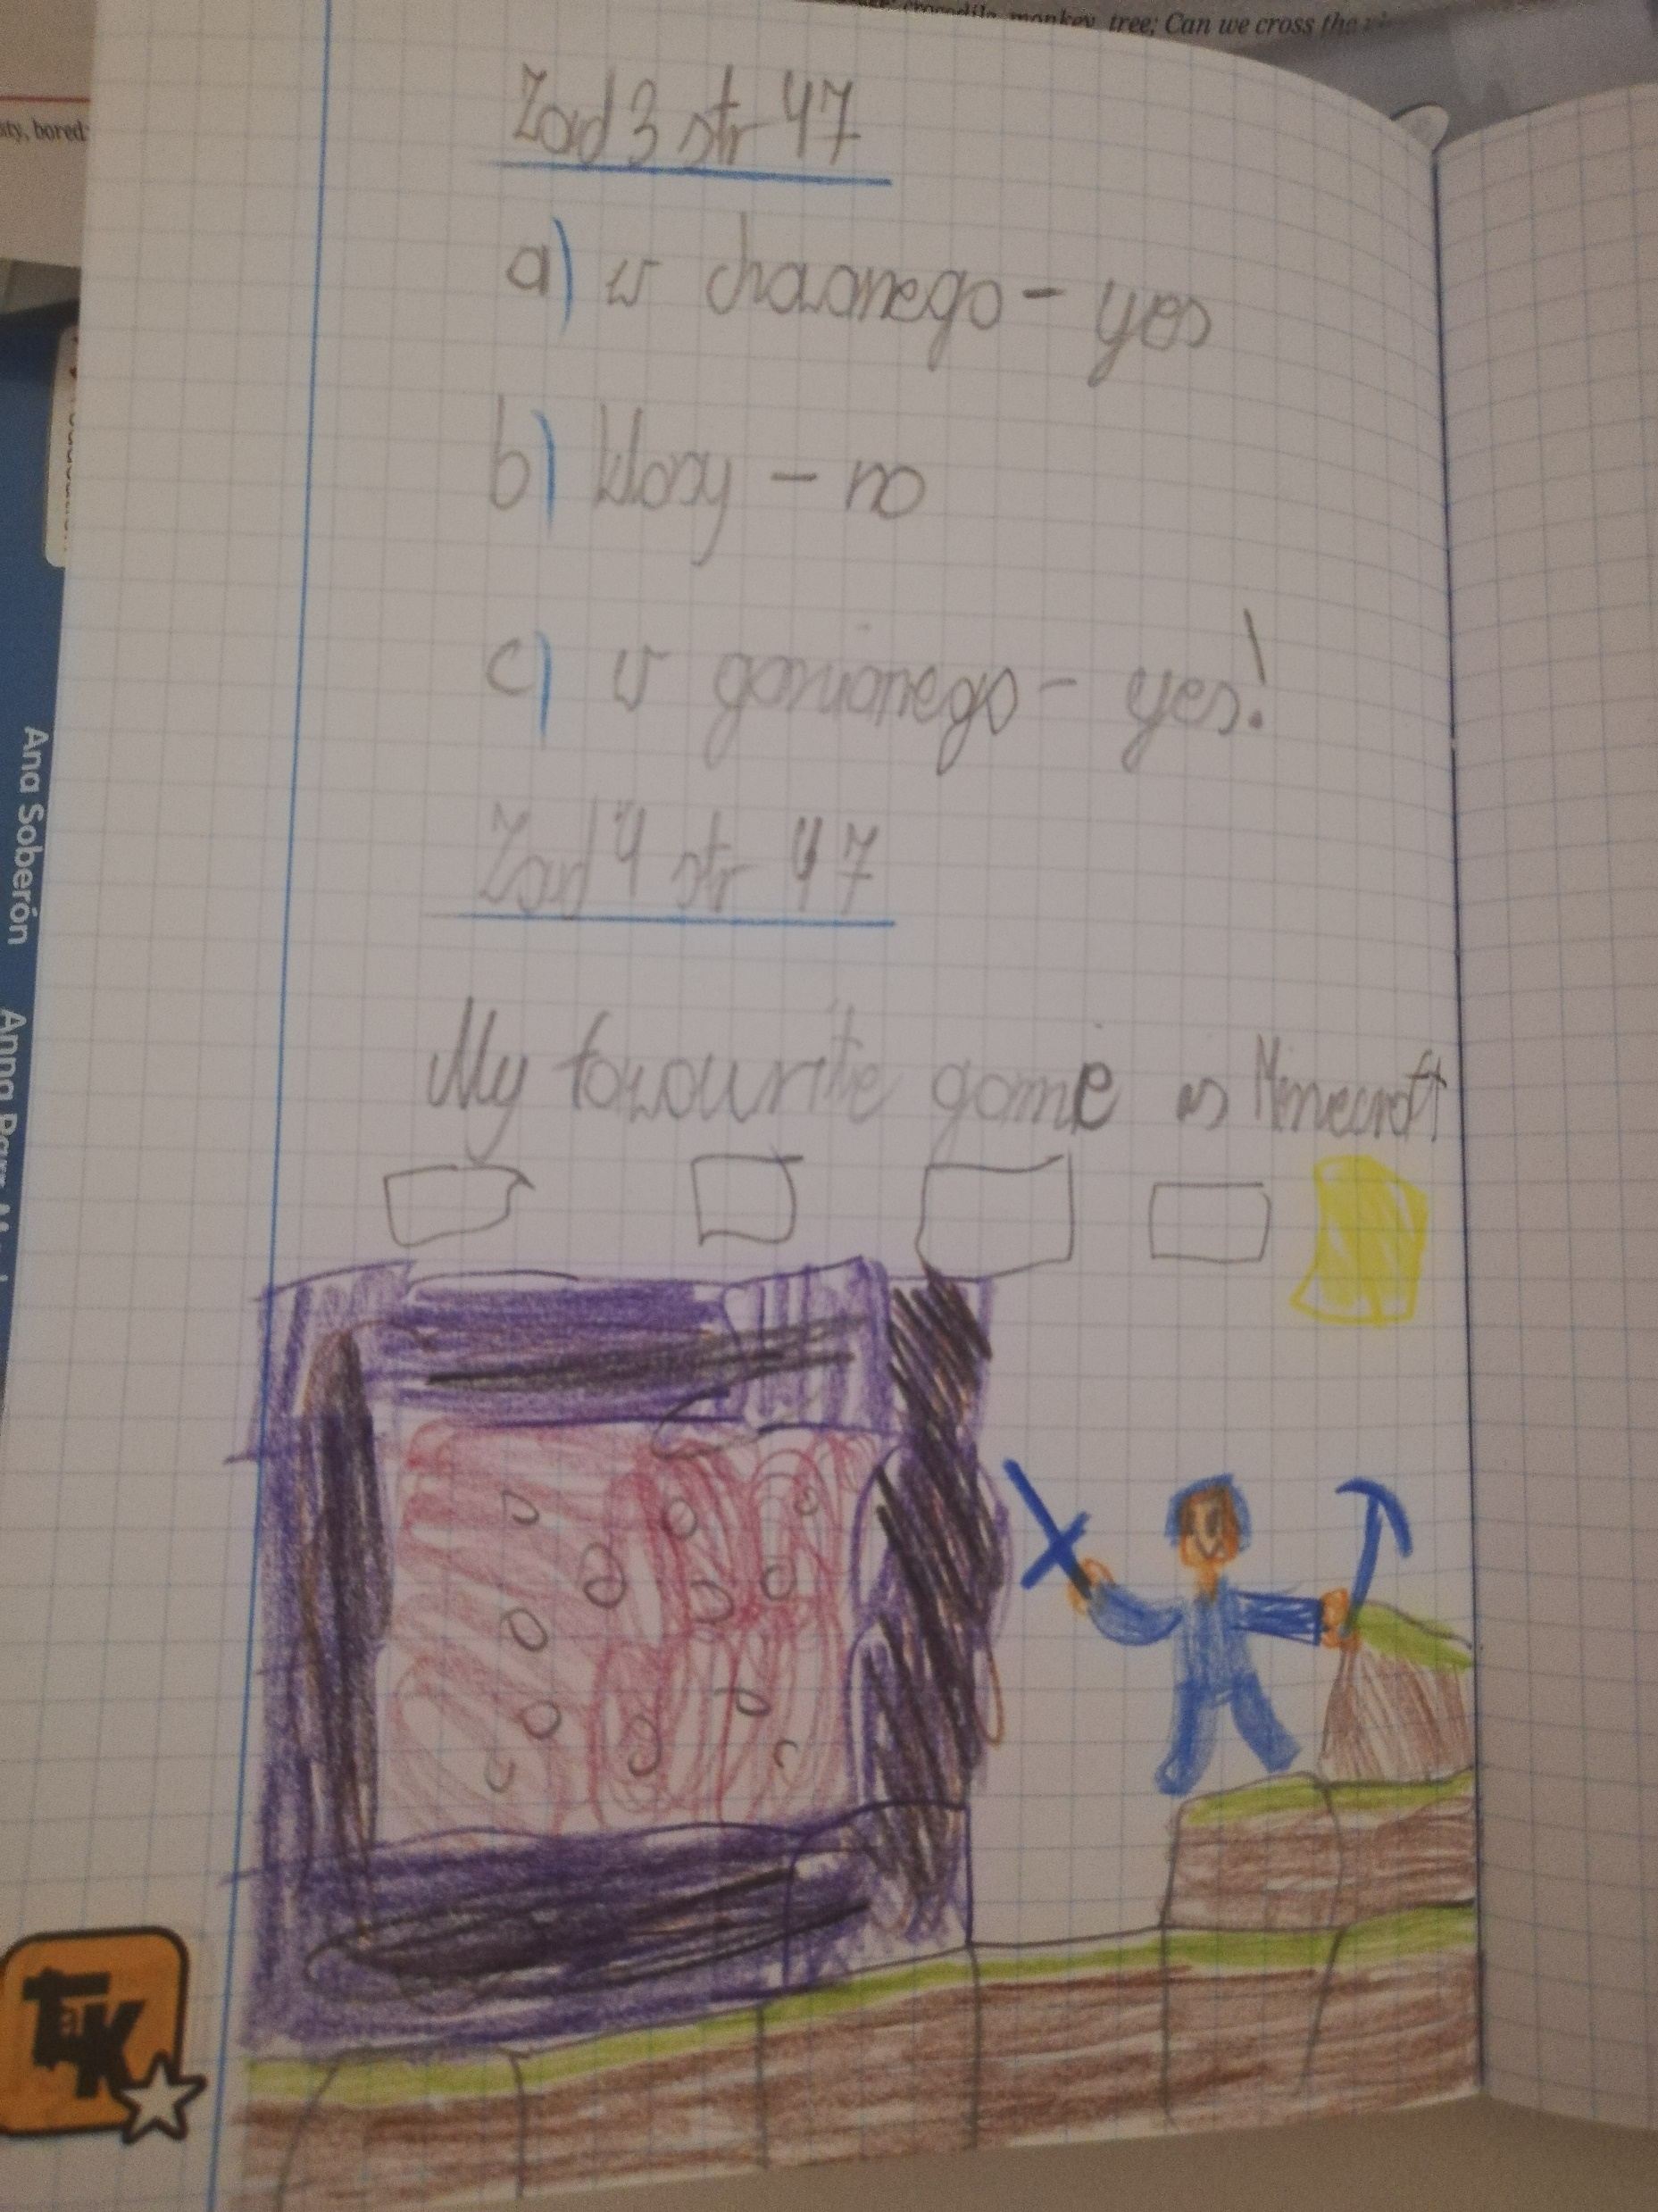 crocodile, monkey, tree; Can we cross the
sty, bored
Zad 3 str 47
a) w chowanego - yes
b) klasy - no
c) w ganianego - yes!
Zad 4 str 47
My fawourite game is Minecraft
Ana Soberón
Anna Parr